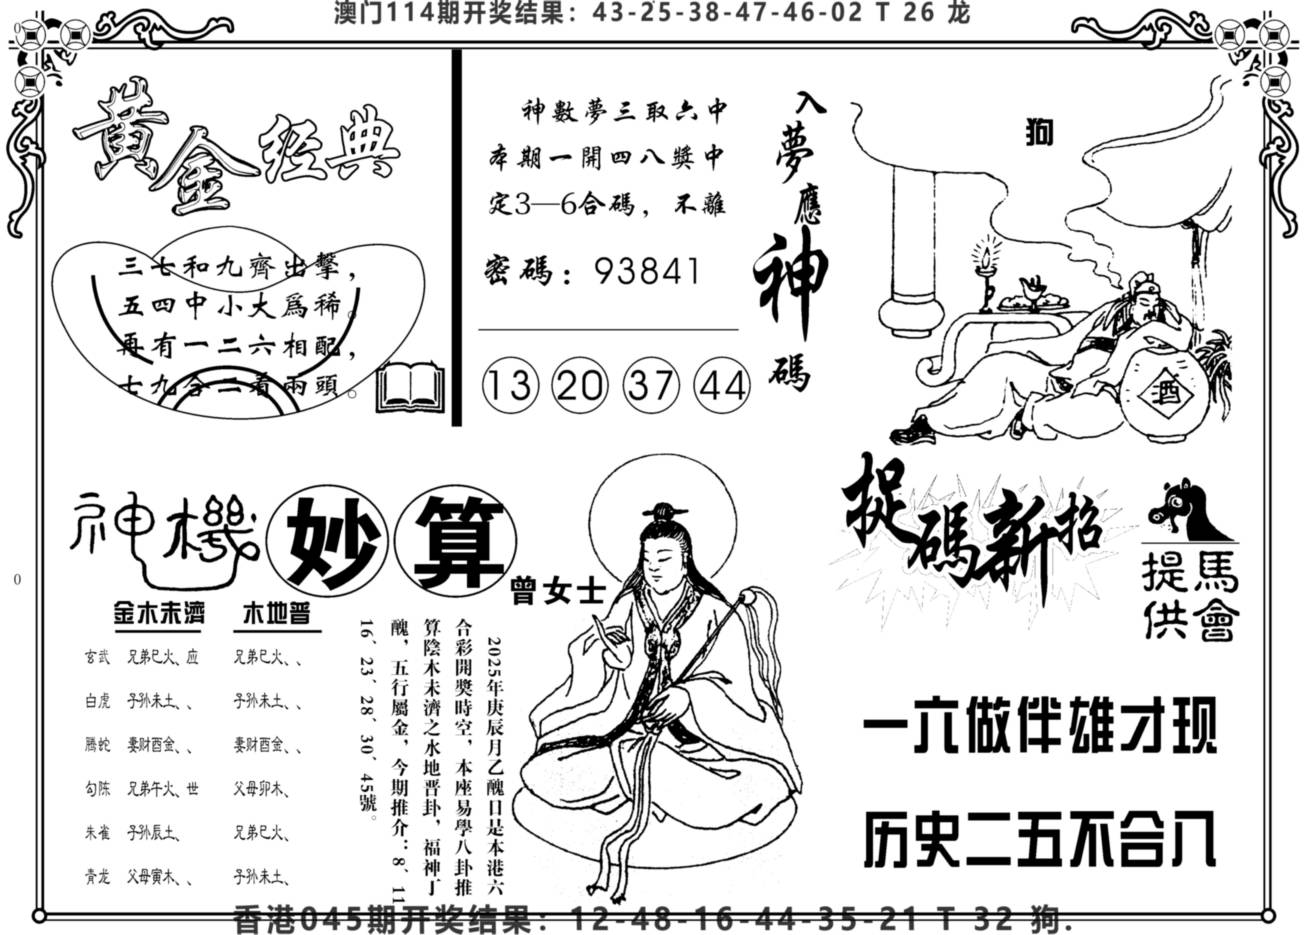 澳门114期开奖结果：43-25-38-47-46-02 T 26 龙
黃金经典
三七和九齊出擊，
五四中小大爲稀。
再有一二六相配，
七九合二看兩頭。
神數夢三取六中
本期一開四八獎中
定3—6合碼，不離
密碼：93841
13 20 37 44
入夢應神碼
狗
酒
神機妙算
曾女士
金木未濟 木地普
玄武 兄弟巳火、应 兄弟巳火、、
白虎 子孙未土、、 子孙未土、、
腾蛇 妻财酉金、、 妻财酉金、、
勾陈 兄弟午火、世 父母卯木、
朱雀 子孙辰土、 兄弟巳火、
青龙 父母寅木、、 子孙未土、
2025年庚辰月乙醜日是本港六
合彩開獎時空，本座易學八卦推
算陰木未濟之水地晋卦，福神丁
醜，五行屬金，今期推介：8、11
16、23、28、30、45號。
捉碼新招
馬會提供
一六做伴雄才现
历史二五不合八
香港045期开奖结果：12-48-16-44-35-21 T 32 狗.
0
0